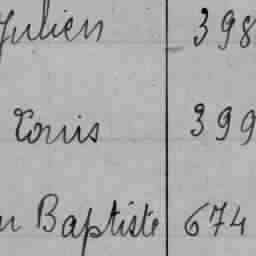 Julien 398
Louis 399
n Baptiste 674